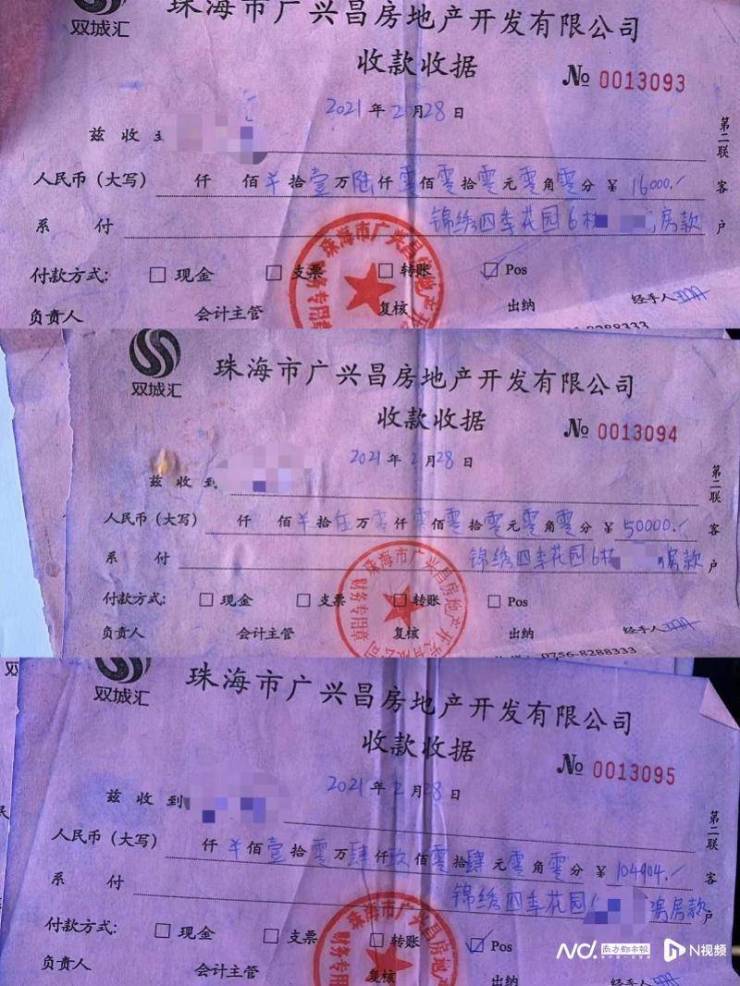 双城汇
珠海市广兴昌房地产开发有限公司
收款收据
№ 0013093
2021年2月28日
兹 收 到
人民币（大写） 仟 佰¥拾壹万陆仟零佰零拾零元零角零分 ¥ 16000.-
系 付 锦绣四季花园6栋 房款
付款方式: □ 现金 □ 支票 □ 转账 ☑ Pos
负责人 会计主管 复核 出纳 经手人
8288333
第二联 客户
珠海市广兴昌房地产开
财务专用章
双城汇
珠海市广兴昌房地产开发有限公司
收款收据
№ 0013094
2021年2月28日
兹 收 到
人民币（大写） 仟 佰¥拾伍万零仟零佰零拾零元零角零分 ¥ 50000.-
系 付 锦绣四季花园6栋 房款
付款方式: □ 现金 □ 支票 □ 转账 □ Pos
负责人 会计主管 复核 出纳 经手人
0756-8288333
第二联 客户
珠海市广兴昌房地产开发有限公司
财务专用章
双城汇
珠海市广兴昌房地产开发有限公司
收款收据
№ 0013095
2021年2月28日
兹 收 到
人民币（大写） 仟¥佰壹拾零万肆仟玖佰零拾肆元零角零分 ¥ 104904.-
系 付 锦绣四季花园 房款
付款方式: □ 现金 □ 支票 □ 转账 ☑ Pos
负责人 会计主管 复核 出纳 经手人
第二联 客户
珠海市广兴昌房地产
财务专用
N. 南方都市报 N视频